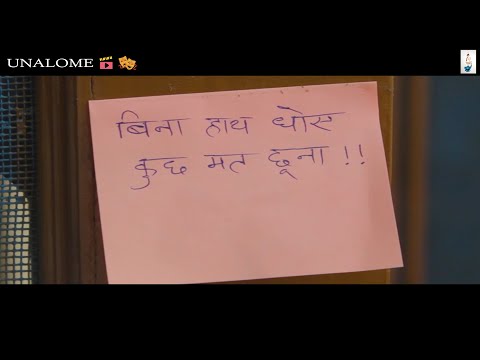 UNALOME
बिना हाथ धोए
कुछ मत छूना !!